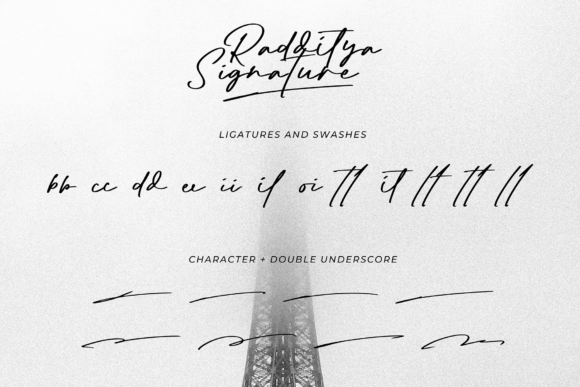 Radditya
Signature
LIGATURES AND SWASHES
bb cc dd ee ii il oi tl it lt tt ll
CHARACTER + DOUBLE UNDERSCORE